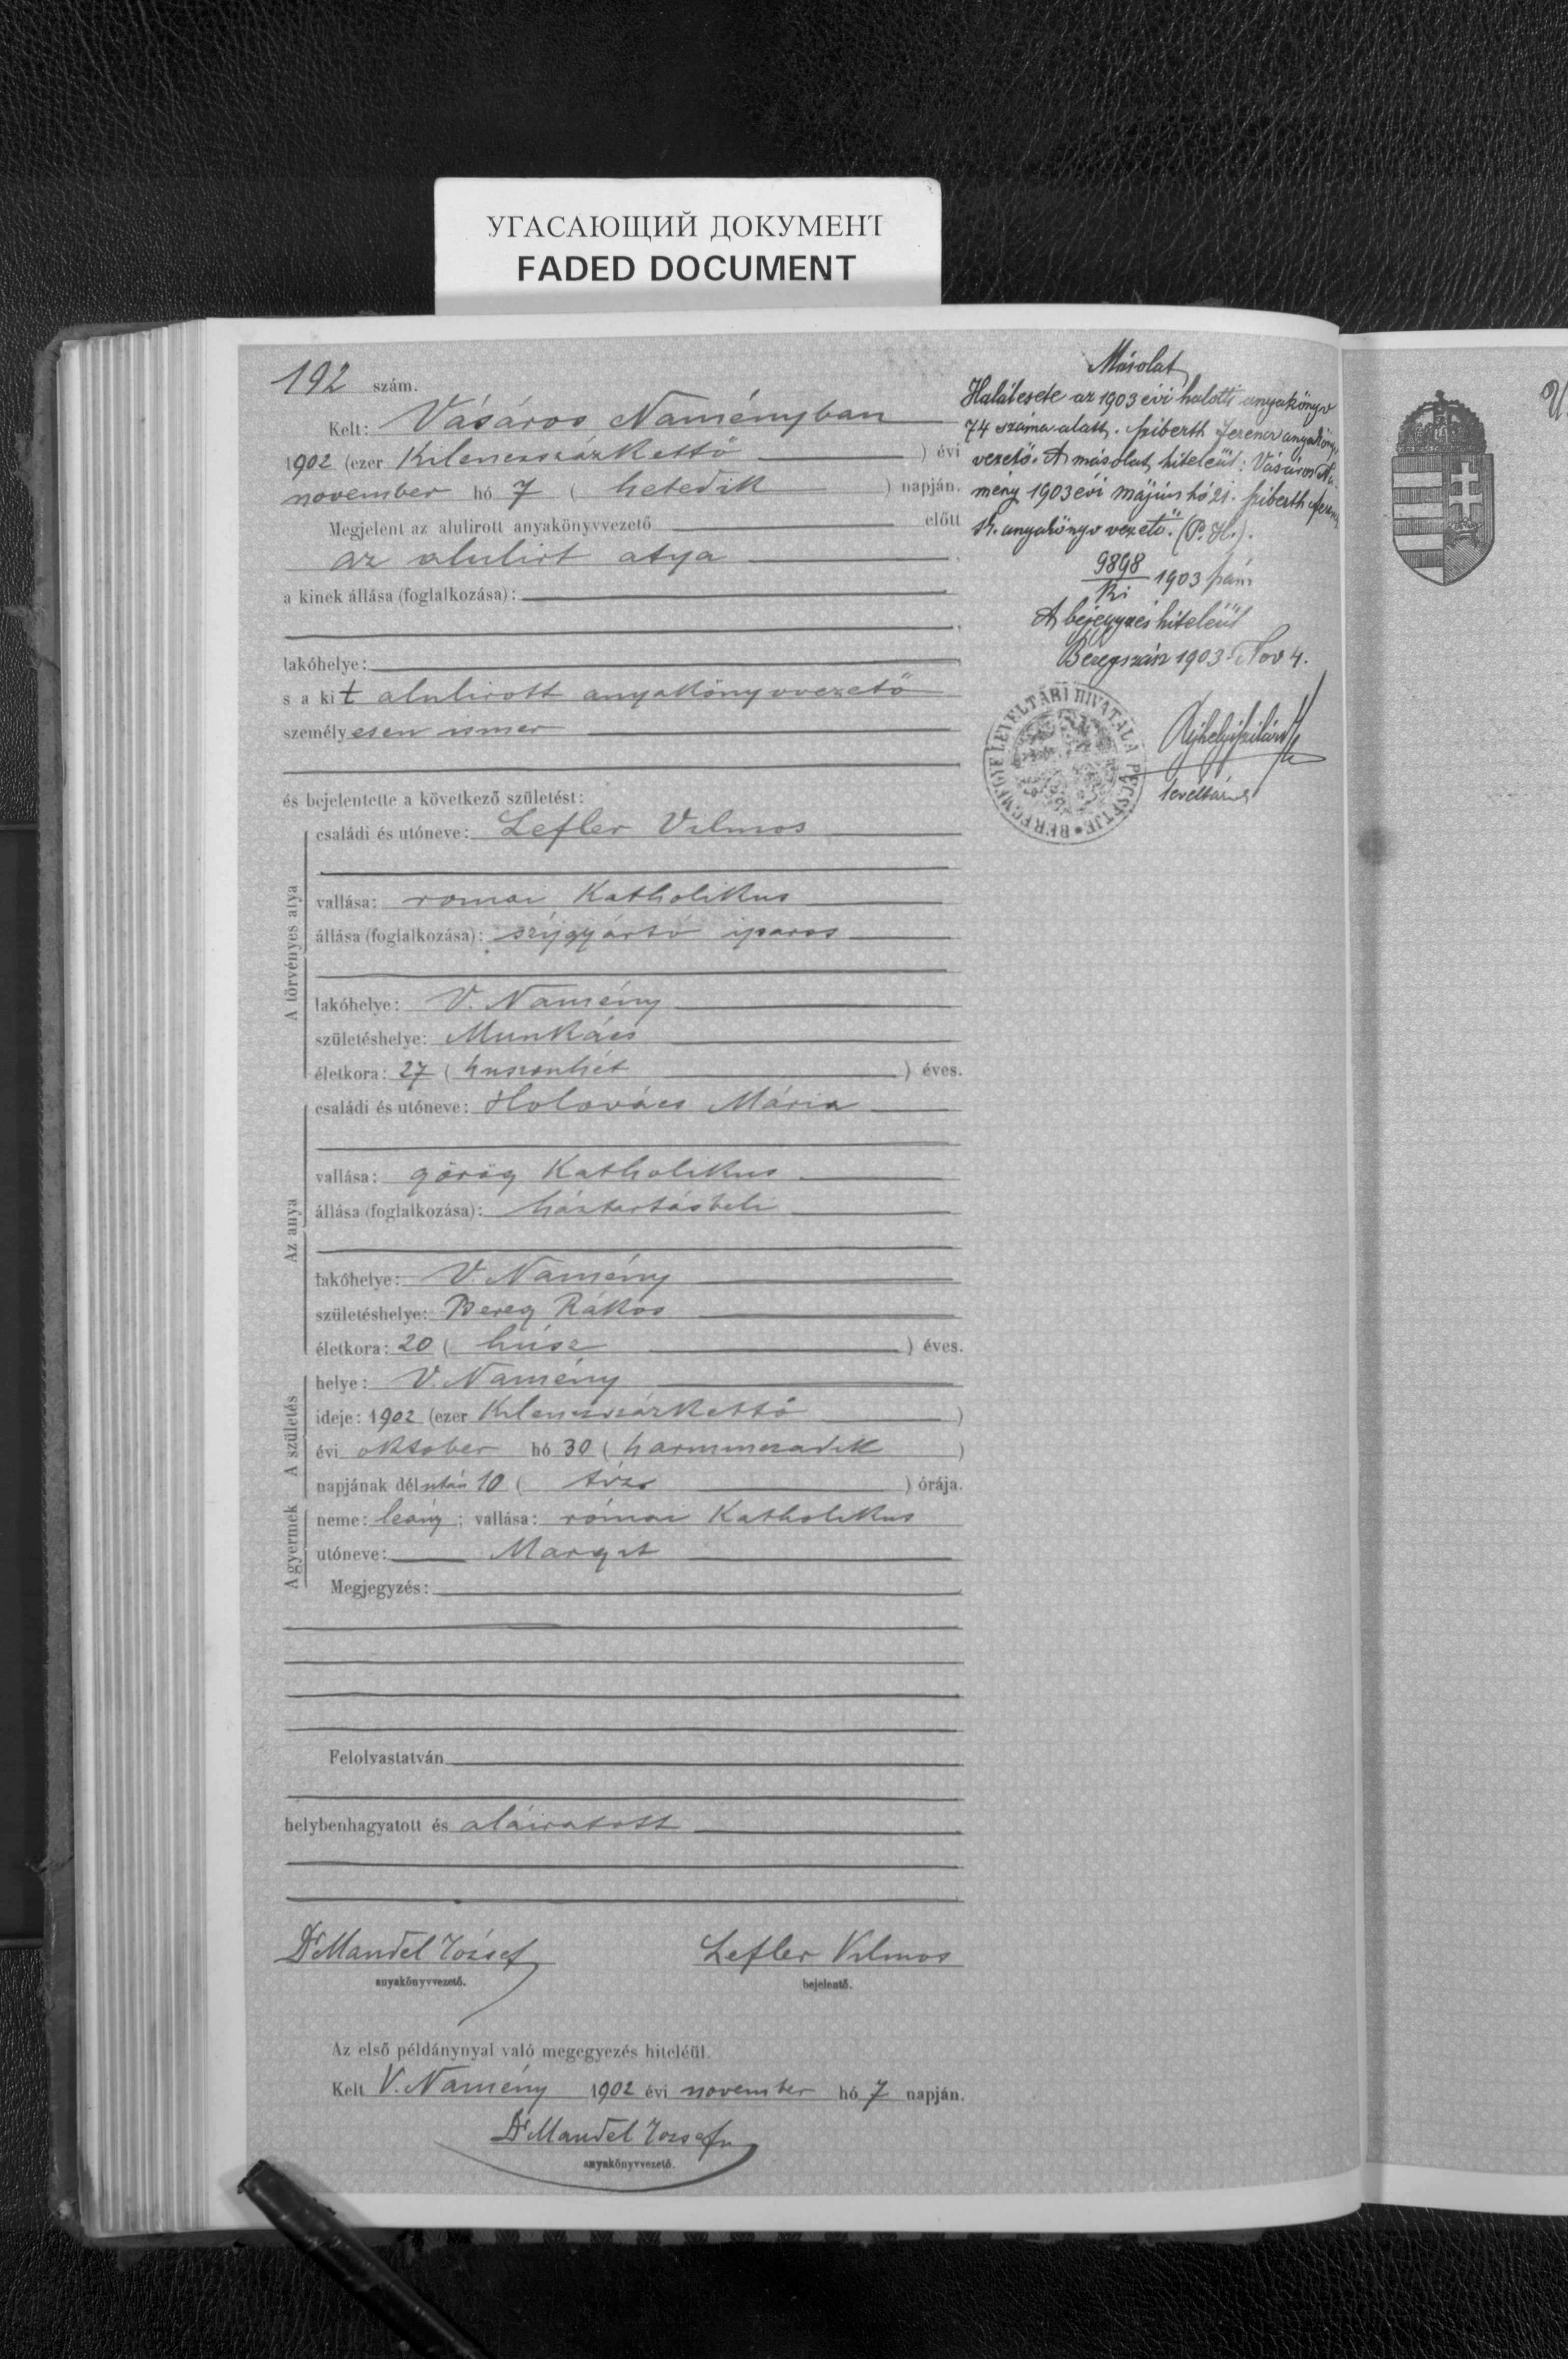 УГАСАЮЩИЙ ДОКУМЕНТ
FADED DOCUMENT
192 szám.
Kelt: Vásáros Naményban
1902 (ezer Kilenczszázkettő) évi
november hó 7 (hetedik) napján.
Megjelent az alulirott anyakönyvvezető előtt
az alulirt atya
a kinek állása (foglalkozása):
lakóhelye:
s a kit alulirott anyakönyvvezető
személyesen ismer
és bejelentette a következő születést:
A törvényes atya
családi és utóneve: Lefler Vilmos
vallása: romai Katholikus
állása (foglalkozása): szijgyártó iparos
lakóhelye: V. Namény
születéshelye: Munkács
életkora: 27 (huszonhét) éves.
Az anya
családi és utóneve: Holovács Mária
vallása: görög Katholikus
állása (foglalkozása): háztartásbeli
lakóhelye: V. Namény
születéshelye: Bereg Rákos
életkora: 20 (húsz) éves.
A születés
helye: V. Namény
ideje: 1902 (ezer Kilenczszázkettő)
évi oktober hó 30 (harminczadik)
napjának délután 10 (tiz) órája.
A gyermek
neme: leány; vallása: római Katholikus
utóneve: Margit
Megjegyzés:
Felolvastatván
helybenhagyatott és aláiratott
Dr Mandel József
anyakönyvvezető.
Lefler Vilmos
bejelentő.
Az első példánynyal való megegyezés hiteléül.
Kelt V. Namény 1902 évi november hó 7 napján.
Dr Mandel József
anyakönyvvezető.
Másolat
Halálesete az 1903 évi halotti anyakönyv
74 száma alatt. Sziberth Ferencz anyakönyv
vezető. A másolat hiteléül: Vásáros Na
mény 1903 évi május hó 21. Sziberth Ferencz
sk. anyakönyv vezető. (P. H.).
9898
Ki 1903 szám
A bejegyzés hiteléül
Beregszász 1903 Nov 4.
levéltárnok
BEREGMEGYE LEVÉLTÁRI HIVATALA PECSÉTJE